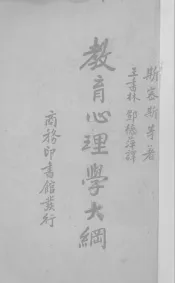 斯塞斯等著
王書林 鄭德萍譯
教育心理學大綱
商務印書館發行